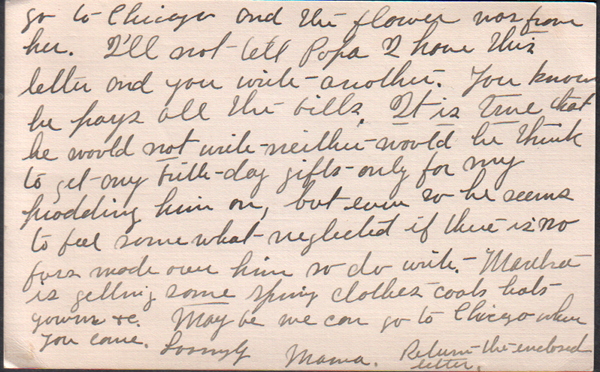 go to Chicago and the flower was from
her. I'll not tell Popa I have this
letter and you write - another. You know
he pays all the bills. It is true that
he would not write - neither - would he think
to get - any birth-day gifts - only for my
prodding him on, but even so he seems
to feel somewhat - neglected if there is no
fuss made over him so do write. - Martha
is getting some spring clothes - coats hats
gowns &c. May be we can go to Chicago when
you come. Lovingly Mama. Return - the - enclosed
letter.